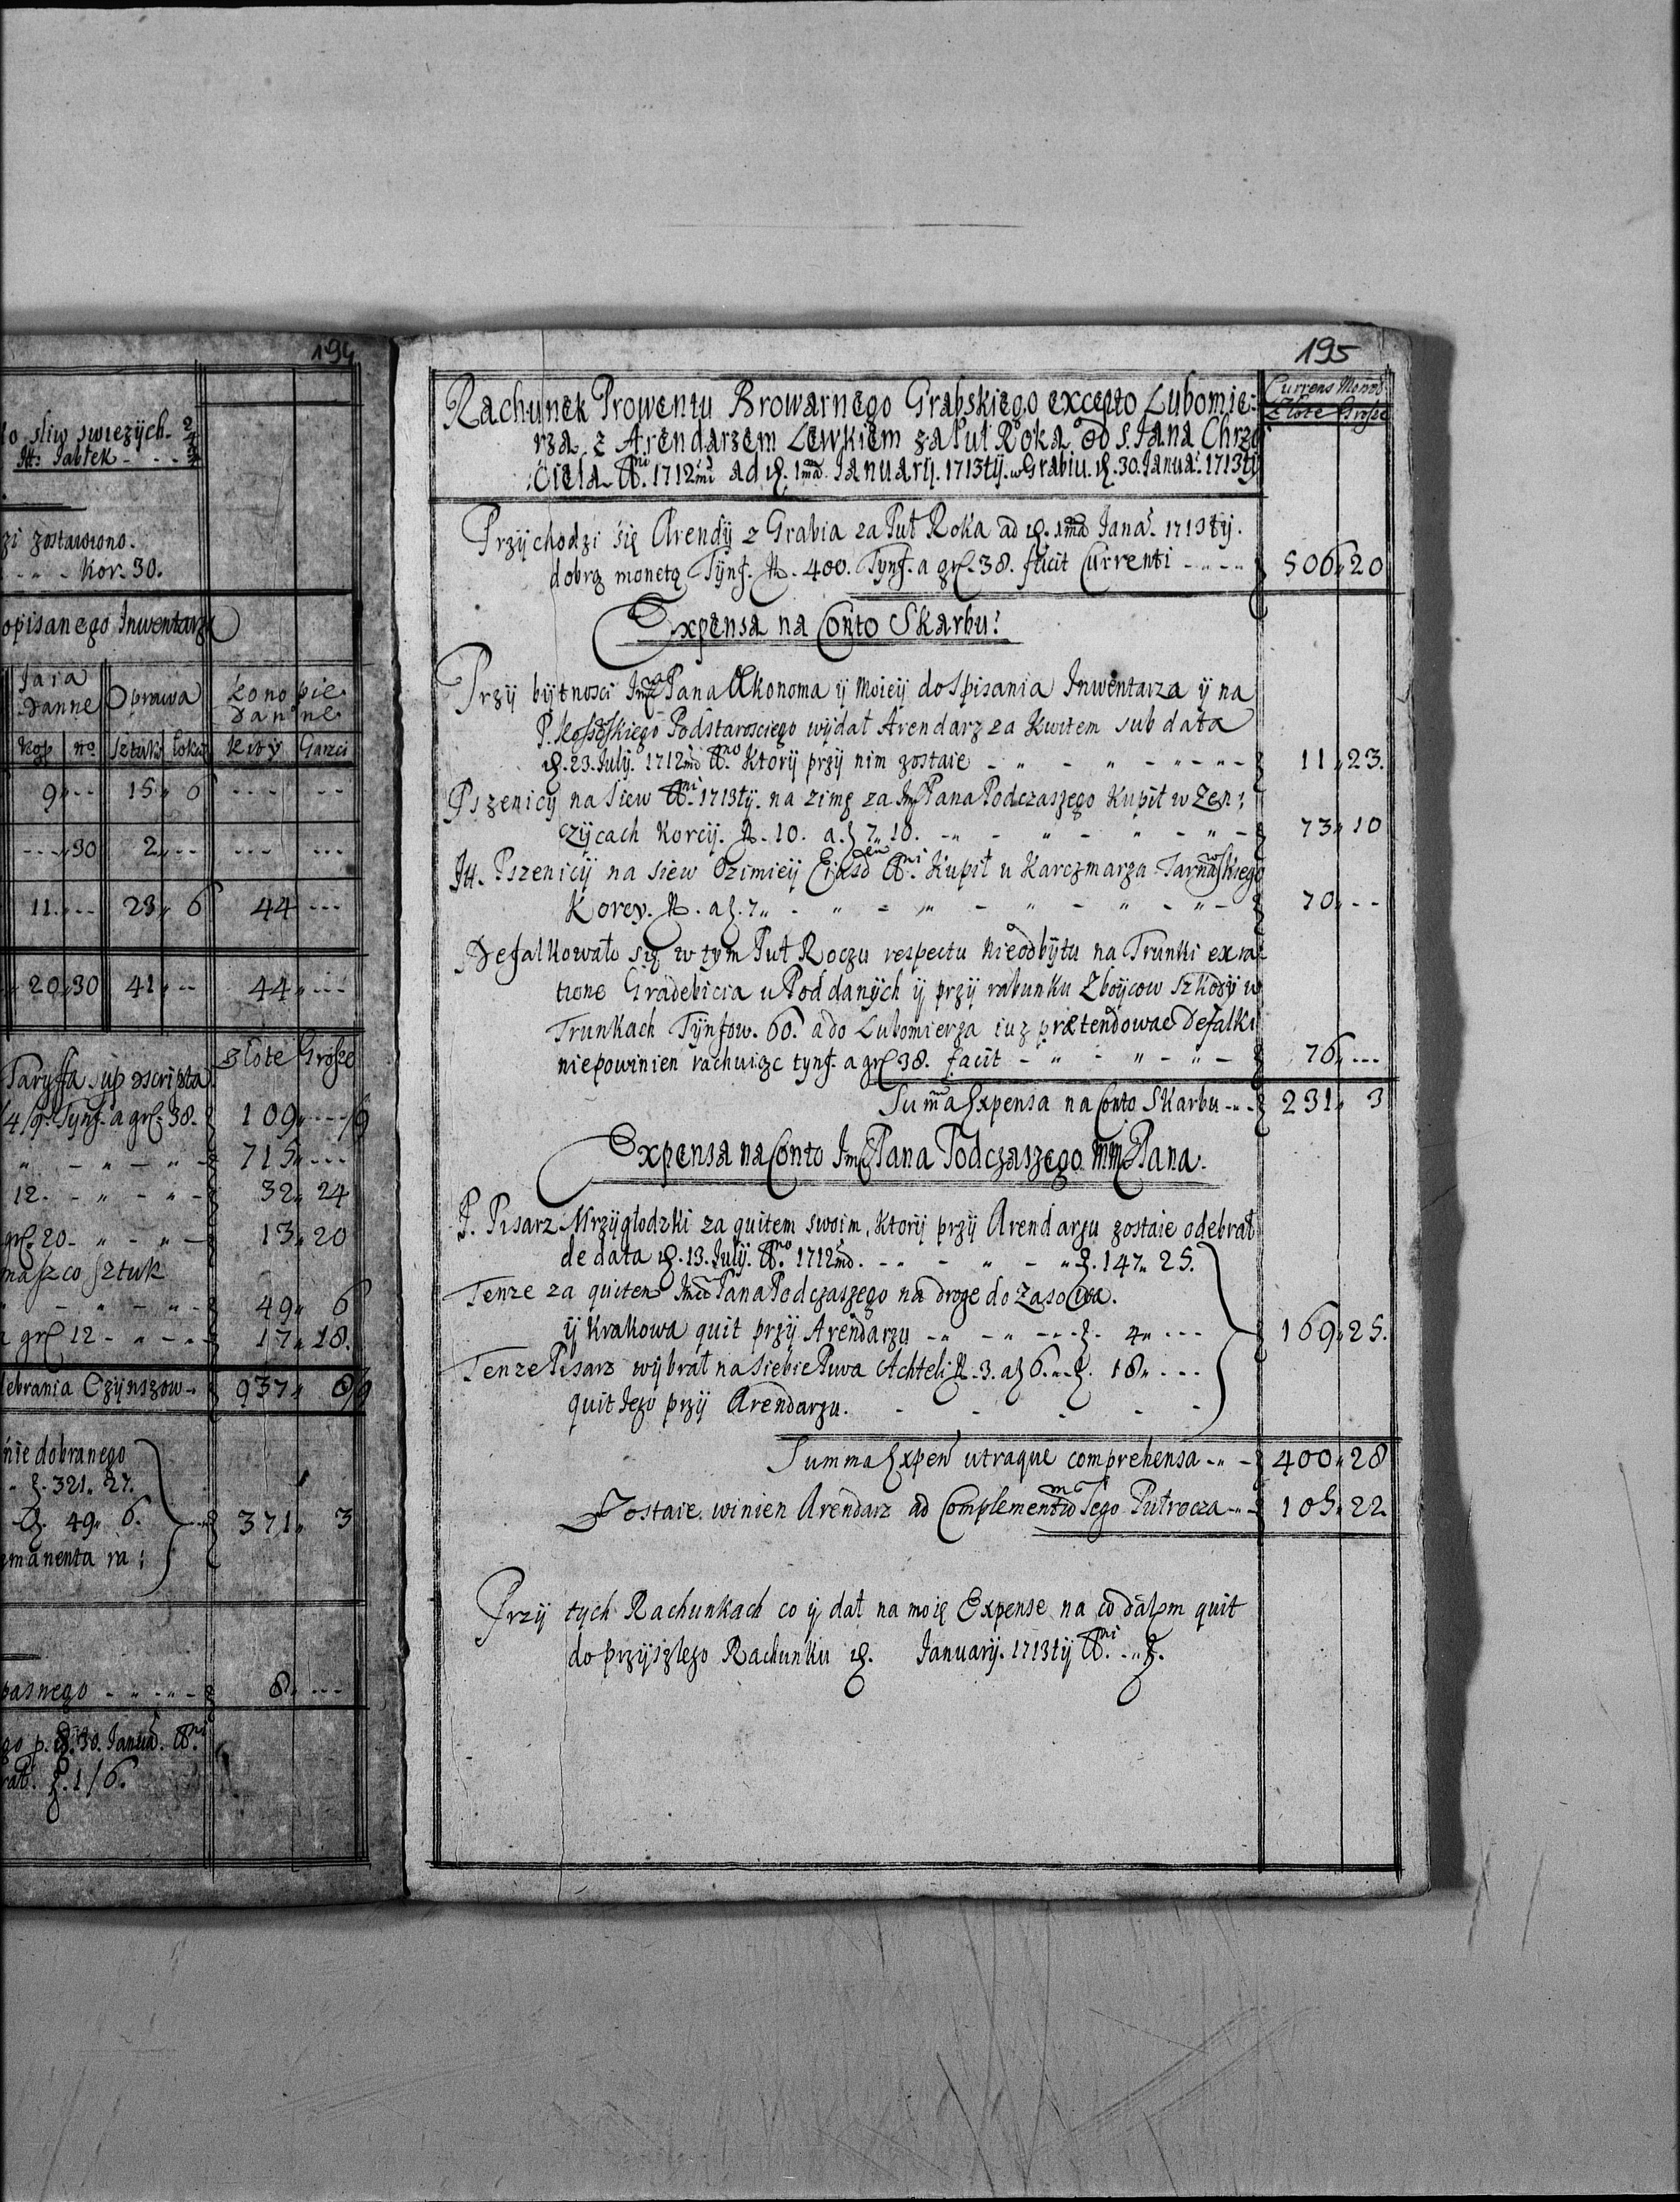 194
sliw swiezych
Itt. Jabłek - - -
zostawiono.
- - - Kor. 30.
opisanego Inwentarza
Jaia danne Oprawa konopie danne
kop no sztuk łokci kity Garsci
9 „ -- 15 „ 6 --- --
--- „ 30 2 „ -- --- ---
11 „ -- 23 „ 6 44 ---
20 „ 30 41 „ -- 44 „ ---
Taryffa sup dscripta złote Grosze
Tynf. a grl. 38. 109 „ ---
715 „ ---
12. - „ - „ - 32 „ 24
grl. 20 - „ - „ - 13 „ 20
co sztuk
49 „ 6
grl 12 - „ - „ - 17 „ 18.
Czynszow 937 „
nie dobranego
321 „ 27.
49 „ 6. 371 „ 3
manenta ra:
8 „ ---
30. Januar. Ani
195
Currens Monet.
Złote Grosze
Rachunek Prowentu Browarnego Grabskiego excepto Lubomie:
rza z Arendarzem Lewkiem za Puł Roka od S. Jana Chrzci
ciela Ani. 1712mi ad d. 1ma. Januarij. 1713tij. w Grabiu. d. 30. Janua. 1713tij
Przychodzi się Arendy z Grabia za Puł Roka ad d. 1ma Jana. 1713tij.
dobrą monetą Tynf. N. 400. Tynf. a grl. 38. facit Currenti - „ - - 506 „ 20
Expensa na Conto Skarbu:
Przy bytnosci Jmci Pana Œkonoma y Moiey do Spisania Inwentarza y na
P. Podstarosciego wydał Arendarz za Kwitem sub data
d. 23. July. 1712md Ano. Ktory przy nim zostaie - „ - „ - „ - „ - 11 „ 23.
Pszenicy na Siew Ani. 1713tij. na zimę za Jmci Pana Podczaszego Kupił w Zen:
czycach Korcy. N. 10. a. 7 „ 10. - „ - „ - „ - „ - 73 „ 10
Itt. Pszenicy na Siew Ozimiey Eiusd Ani. Kupił u Karczmarza Tarnawskiego
Korcy. N. a. 7 „ - „ - „ - „ - „ - „ - 70 „ --
Defalkowało się w tym Puł Roczu respectu nieodbytu na Trunki ex ra:
tione Gradobicia u Poddanych y przy rabunku Zboycow Szkody w
Trunkach Tynfow. 60. a do Lubomierza iuz prætendować defalki
niepowinien rachuiąc tynf. a grl 38. facit - „ - „ - „ - 76 „ ---
Summa Expensa na Conto Skarbu - „ - 231 „ 3
Expensa na Conto Jmci Pana Podczaszego mm Pana.
P. Pisarz Mrzygłodzki za quitem swoim, Ktory przy Arendarzu zostaie odebrał
de data d. 13. July. Ano. 1712md. - „ - „ - „ 147 „ 25.
Tenze za quitem Jmci Pana Podczaszego na droge do Zasowa.
y Krakowa quit przy Arendarzu - „ - „ - - 4 „ --- 169 „ 25.
Tenze Pisarz wybrał na siebie Piwa Achteli N. 3. a 6. - - 18 „ ---
quit Jego przy Arendarzu. - - - - -
Summa Expen utraque comprehensa - „ - 400 „ 28
Zostaie winien Arendarz ad Complementum tego Pułrocza - „ - 105 „ 22.
Przy tych Rachunkach co y dał na moię Expense na co dałem quit
do przyszłego Rachunku d. Januarij. 1713tij Ani. - „